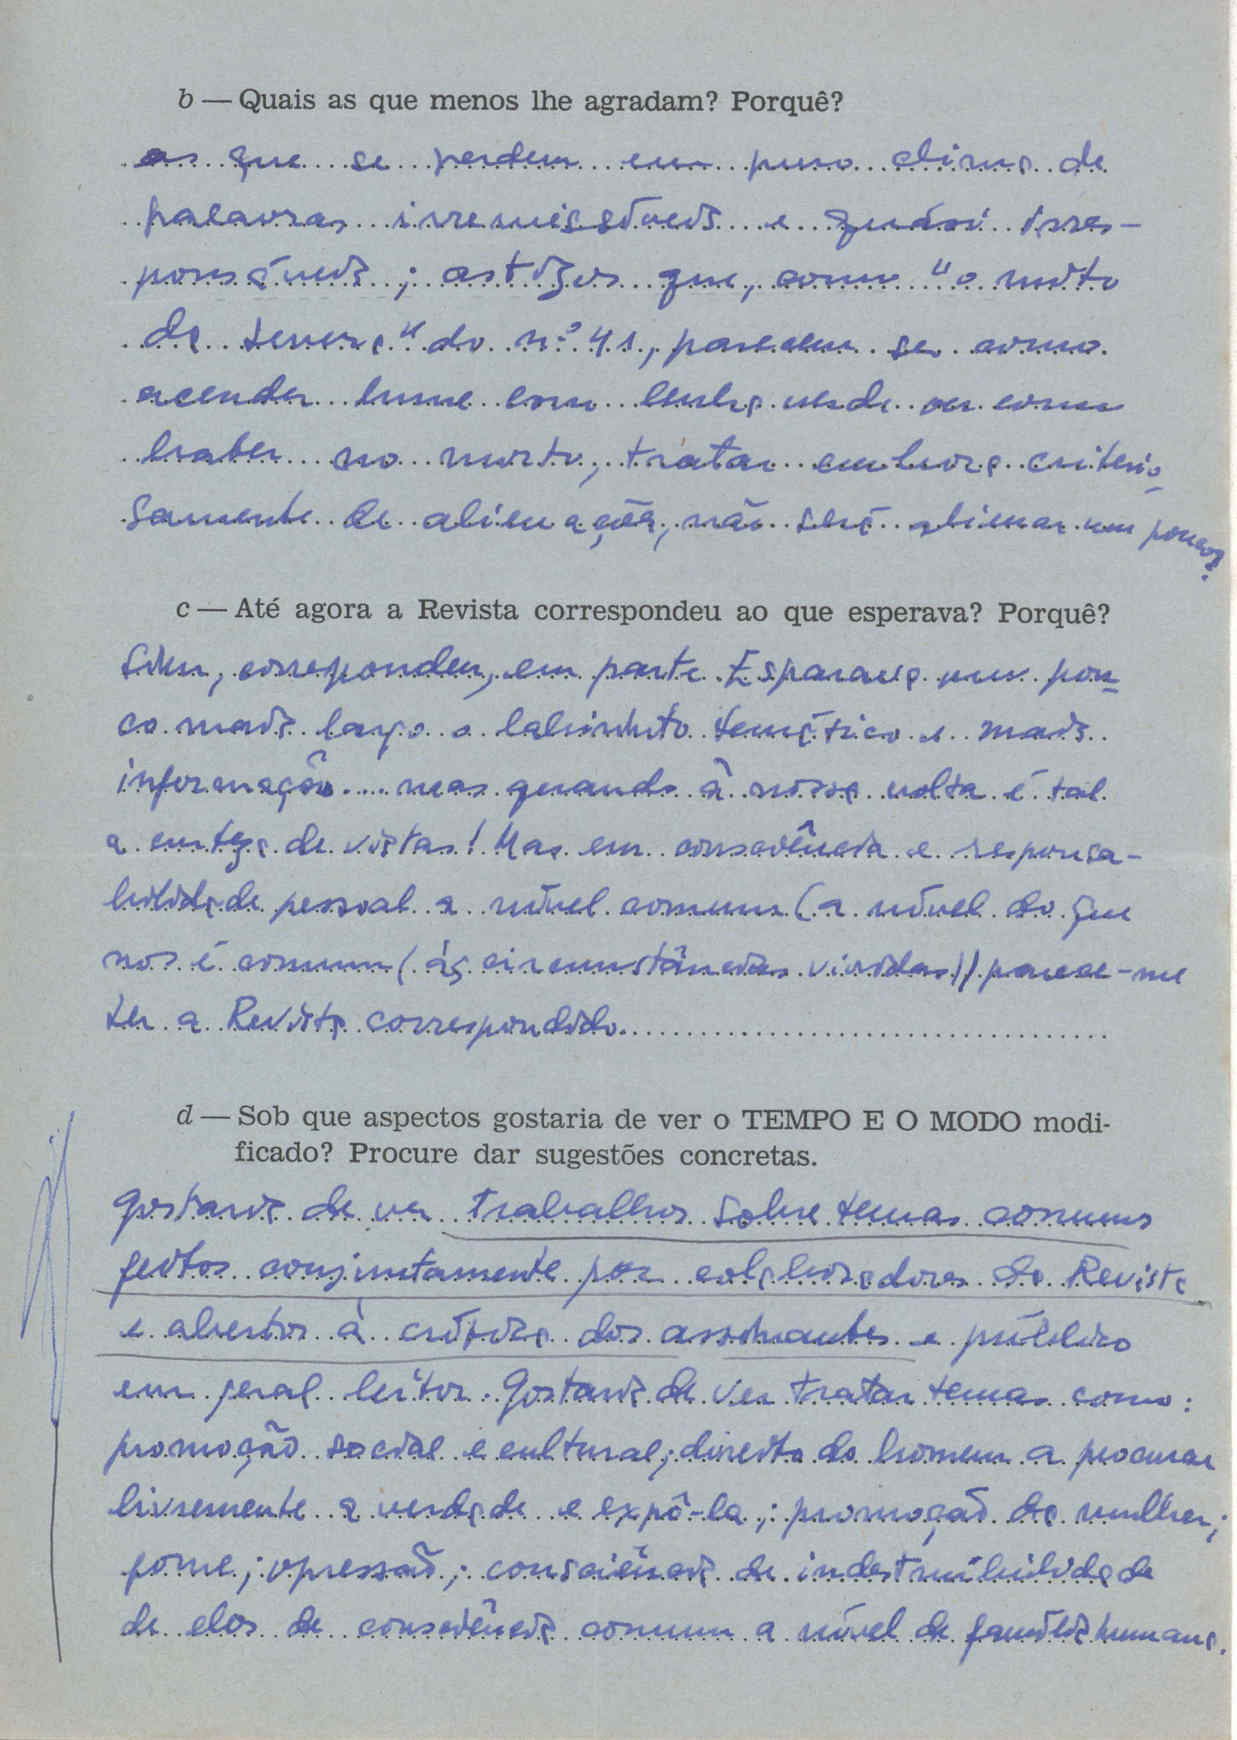 b — Quais as que menos lhe agradam? Porquê?
as que se perdem em puro clima de
palavras irremissíveis e quási irres-
ponsáveis; artigos que, como "o mito
de  " do n.º 41, parecem ser como
acender lume com lenha verde ou como
bater no morto, tratar embora criterio-
samente de alienações, não será alienar um pouco?
c — Até agora a Revista correspondeu ao que esperava? Porquê?
Sim, correspondeu, em parte. Esperava um pou-
co mais largo o labirinto temático e mais
informação.... mas quando à nossa volta é tal
a de vistas! Mas em consciência e responsa-
bilidade pessoal a nível comum (a nível do que
nos é comum (ás circunstâncias vividas)) parece-me
ter a Revista correspondido.
d — Sob que aspectos gostaria de ver o TEMPO E O MODO modi-
ficado? Procure dar sugestões concretas.
Gostaria de ver trabalhos sobre temas comuns
feitos conjuntamente por colaboradores da Revista
e abertos à crítica dos assinantes e público
em geral leitor. Gostaria de ver tratar temas como:
promoção social e cultural; direito do homem a procurar
livremente a verdade e expô-la; promoção da mulher;
fome; opressão; consciência de indestrutibilidade
de elos de consciência comum a nível de família humana.